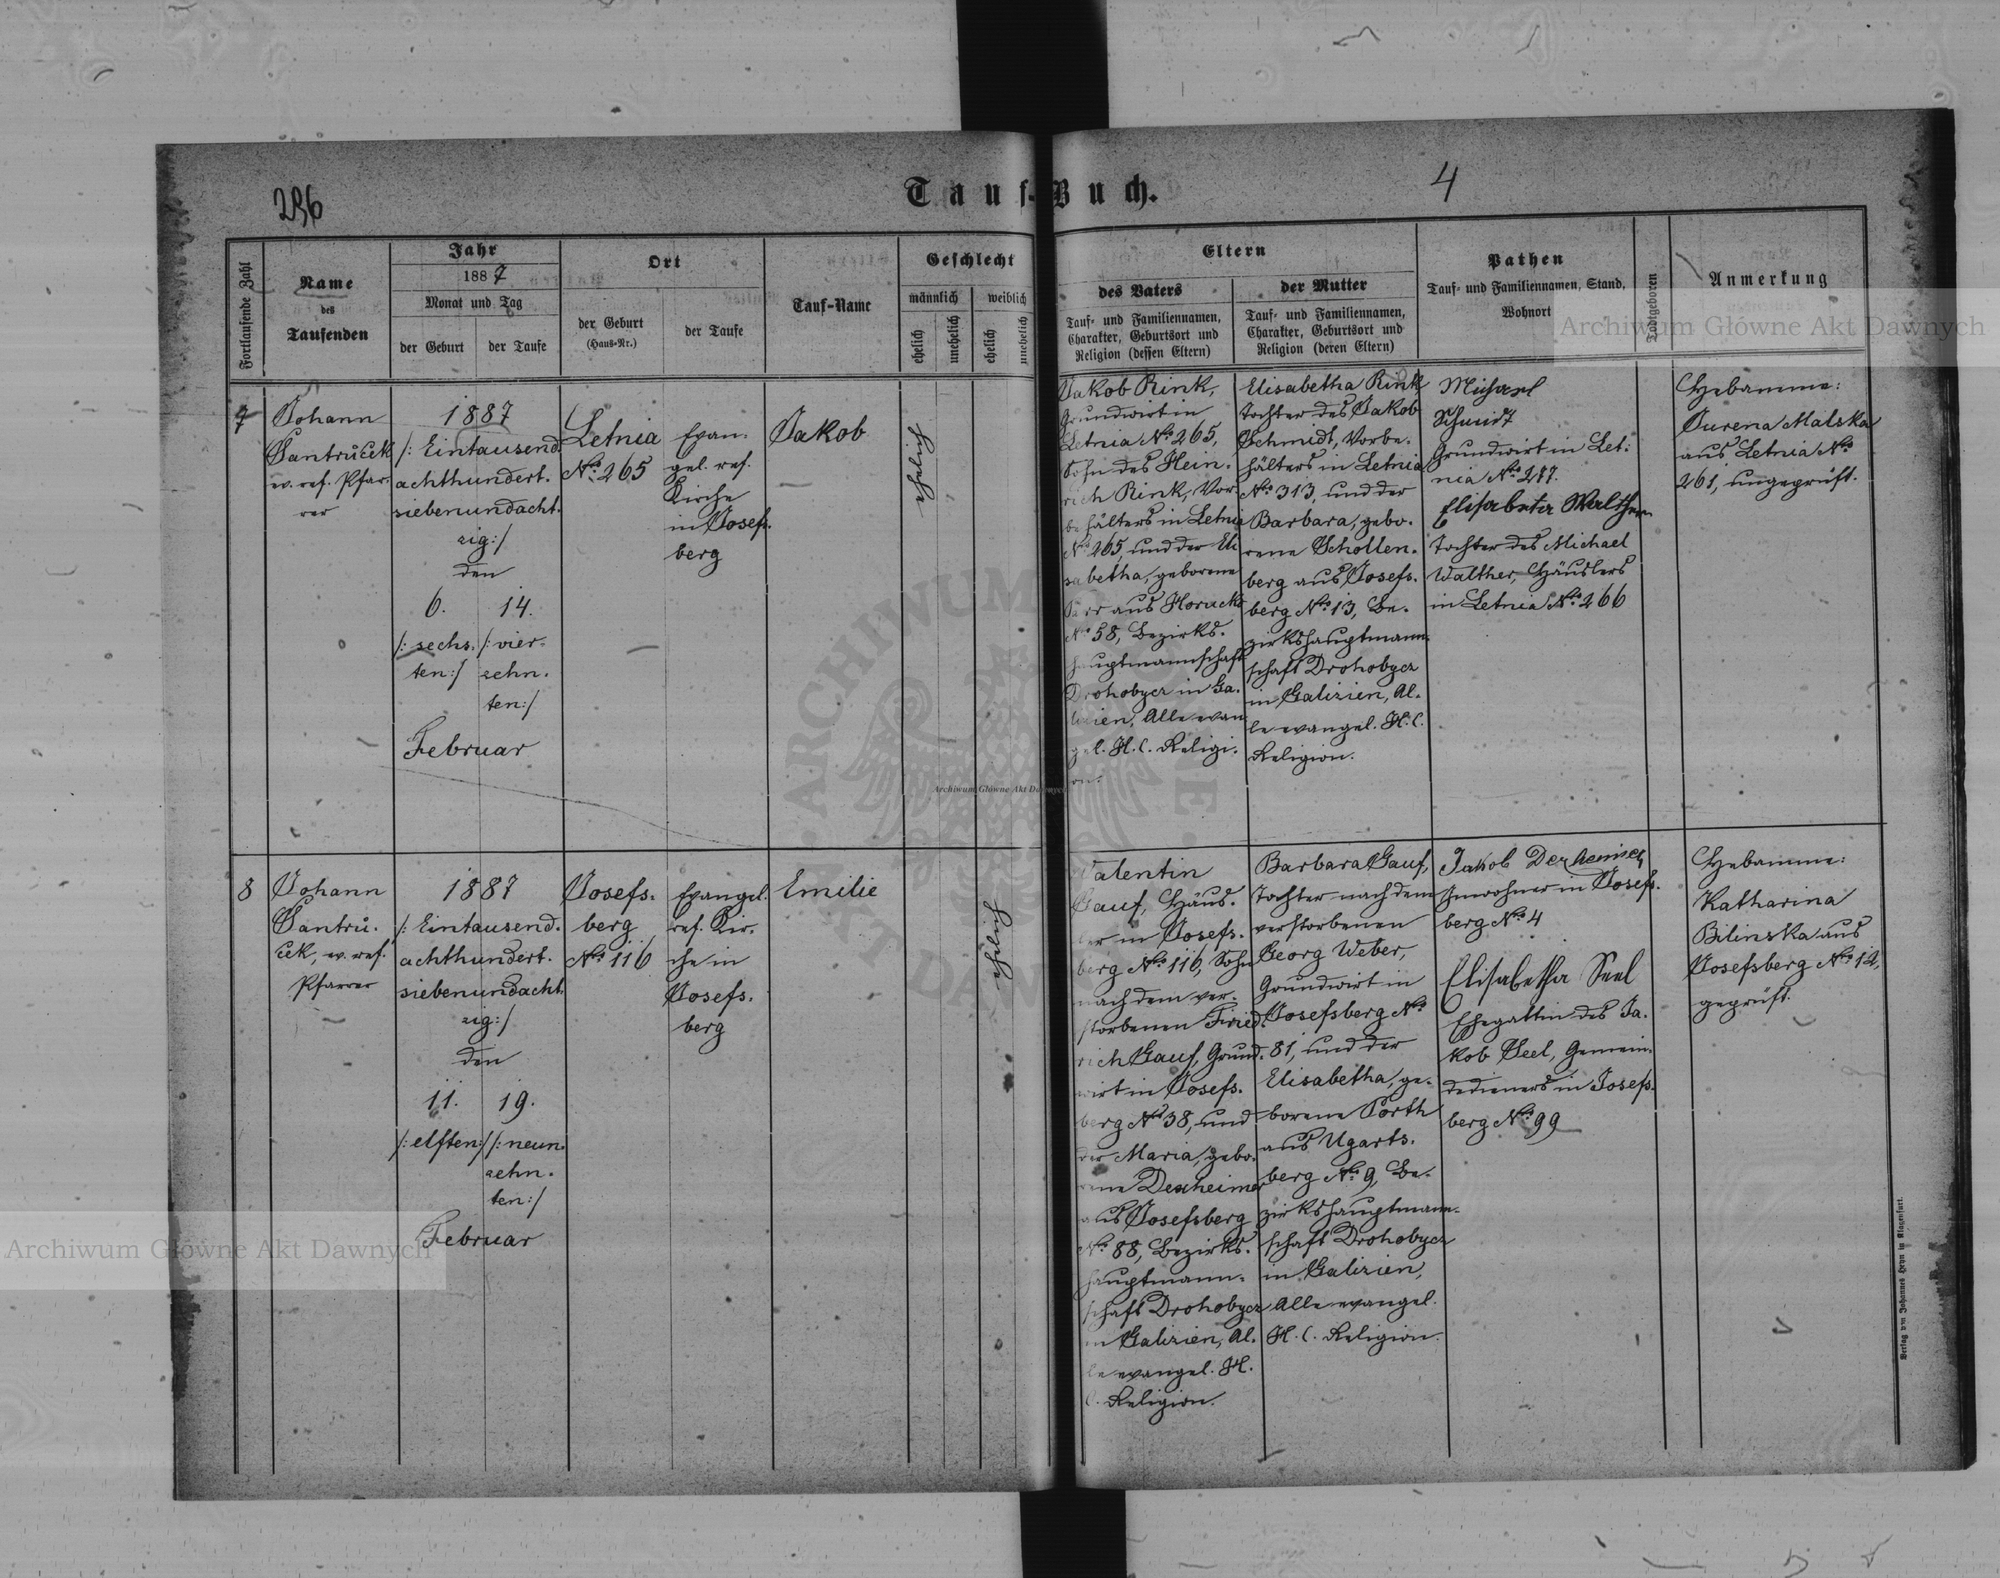 296
Tauf-Buch.
4
Fortlaufende Zahl
Name
des
Taufenden
Jahr
1887
Monat und Tag
der Geburt
der Taufe
Ort
der Geburt
(Haus-Nr.)
der Taufe
Tauf-Name
Geschlecht
männlich
weiblich
ehelich
unehelich
ehelich
unehelich
Eltern
des Vaters
Tauf- und Familiennamen,
Charakter, Geburtsort und
Religion (dessen Eltern)
der Mutter
Tauf- und Familiennamen,
Charakter, Geburtsort und
Religion (deren Eltern)
Pathen
Tauf- und Familiennamen, Stand,
Wohnort
Todtgeboren
Anmerkung
7
Johann
Santrůček
ev. ref. Pfar-
rer
1887
/: Eintausend.
achthundert.
siebenundacht.
zig:/
den
6.
14.
/: sechs.
ten:/
/: vier-
zehn.
ten:/
Februar
Letnia
No. 265
Evan-
gel. ref.
Kirche
in Josefs.
berg
Jakob
ehelich
Jakob Rink,
Grundwirt in
Letnia No. 265,
Sohn des Hein.
rich Rink, Vor-
behälters in Letnia
No. 265, und der Eli
sabetha, geborene
aus Horucko
No. 58, Bezirks.
hauptmannschaft
Drohobycz in Ga.
lizien, Alle evan
gel. H. C. Religi.
on.
Elisabetha Rink,
Tochter des Jakob
Schmidt, Vorbe.
hälters in Letnia
No. 313, und der
Barbara, gebo.
rene Schollen.
berg aus Josefs.
berg No. 13, Be.
zirkshauptmann.
schaft Drohobycz
in Galizien, Al.
le evangel. H. C.
Religion.
Michael
Schmidt
Grundwirt in Let:
nia No. 277.
Elisabeta Walther
Tochter des Michael
Walther, Häuslers
in Letnia No. 266
Hebamme:
Jurena Malska
aus Letnia No.
261, ungeprüft.
8
Johann
Santrů.
ček, ev. ref.
Pfarrer
1887
/: Eintausend.
achthundert.
siebenundacht.
zig:/
den
11.
19.
/: elften:/
/: neun.
zehn.
ten:/
Februar
Josefs.
berg
No. 116
Evangel.
ref. Kir.
che in
Josefs.
berg
Emilie
ehelich
Valentin
Gauf, Häus.
ler in Josefs.
berg No. 116, Sohn
nach dem ver.
storbenen Fried.
rich Gauf, Grund.
wirt in Josefs.
berg No. 38, und
der Maria, gebo.
rene Dexheimer
aus Josefsberg
No. 88, Bezirks.
hauptmann-
schaft Drohobycz
in Galizien, Al.
le evangel. H.
C. Religion.
Barbara Gauf,
Tochter nach dem
verstorbenen
Georg Weber,
Grundwirt in
Josefsberg No.
81, und der
Elisabetha, ge.
borene Porth
aus Ugarts.
berg No. 9, Be.
zirkshauptmann.
schaft Drohobycz
in Galizien,
Alle evangel.
H. C. Religion.
Jakob Dexheimer
Inwohner in Josefs.
berg No. 4
Elisabetha Seel
Ehegattin des Ja.
kob Seel, Gemein.
dedieners in Josefs.
berg No. 99
Hebamme:
Katharina
Bilinska aus
Josefsberg No. 12,
geprüft.
Verlag von Johannes Heyn in Klagenfurt.
Archiwum Główne Akt Dawnych
Archiwum Główne Akt Dawnych
Archiwum Główne Akt Dawnych